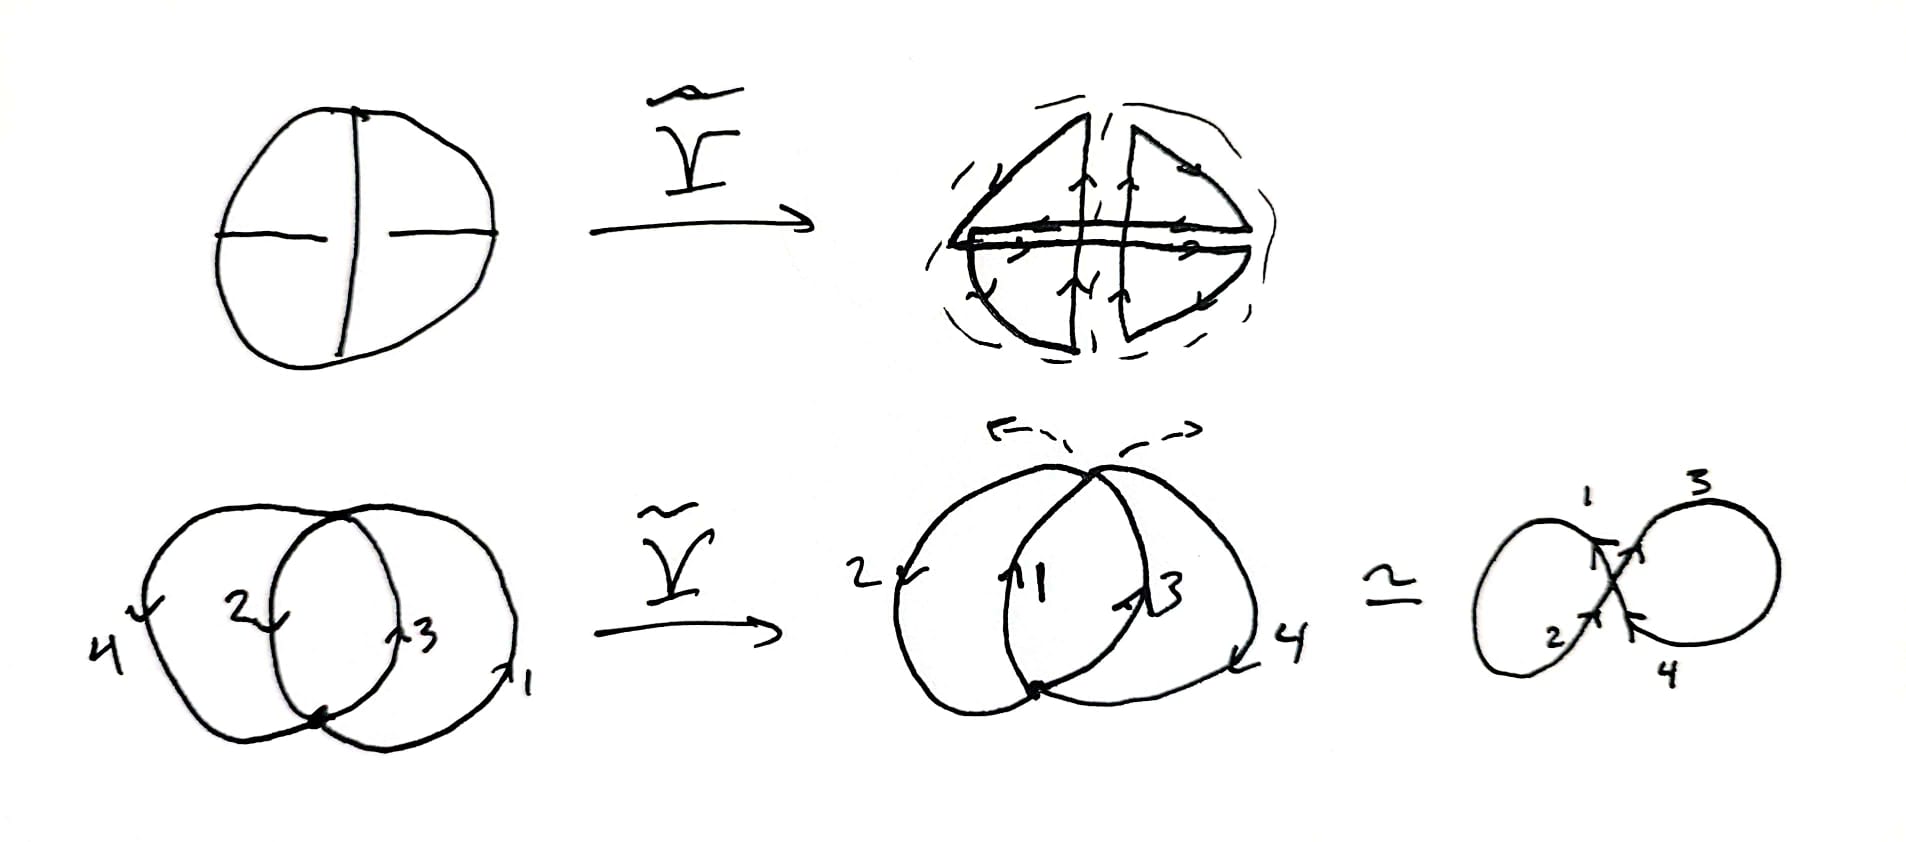 ~
γ
~
γ
4 2 3 1
2 1 3 4
≃
1 3
2 4